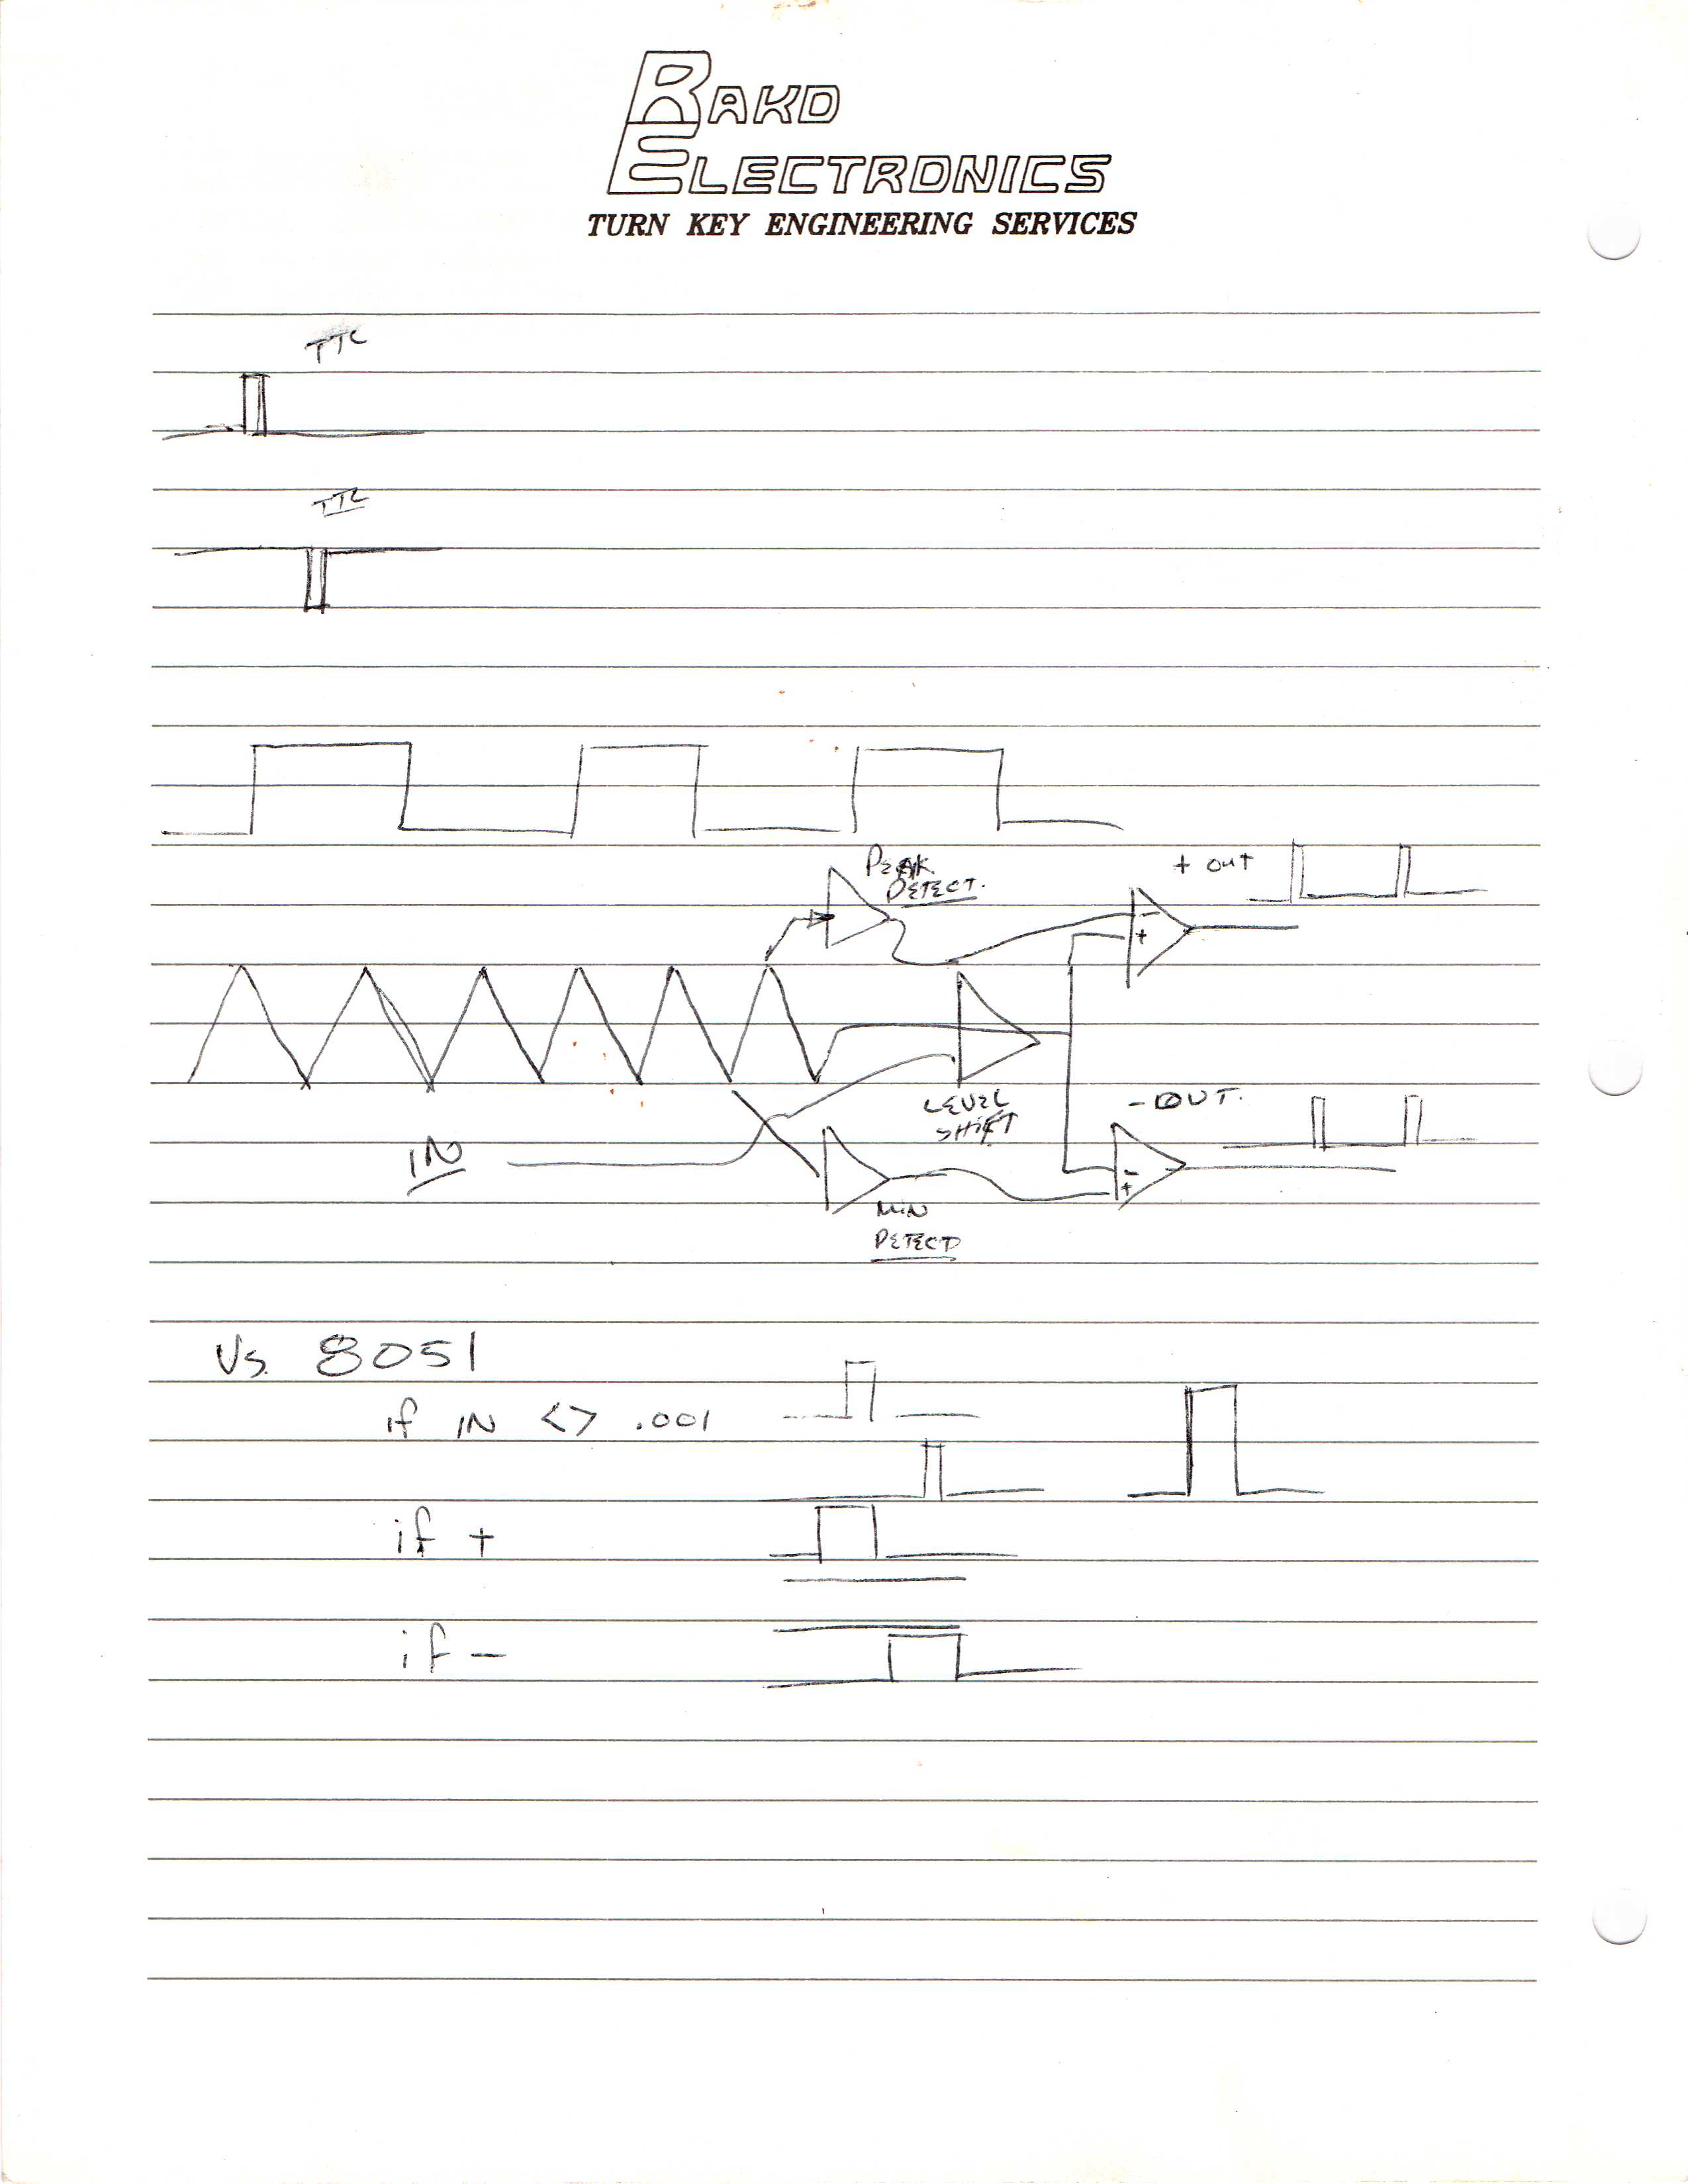 RAKO
ELECTRONICS
TURN KEY ENGINEERING SERVICES
TTL
TTL
PEAK
DETECT.
+ OUT
-
+
LEVEL
SHIFT
- OUT.
IN
-
+
MIN
DETECT
Vs. 8051
if IN <> .001
if +
if -